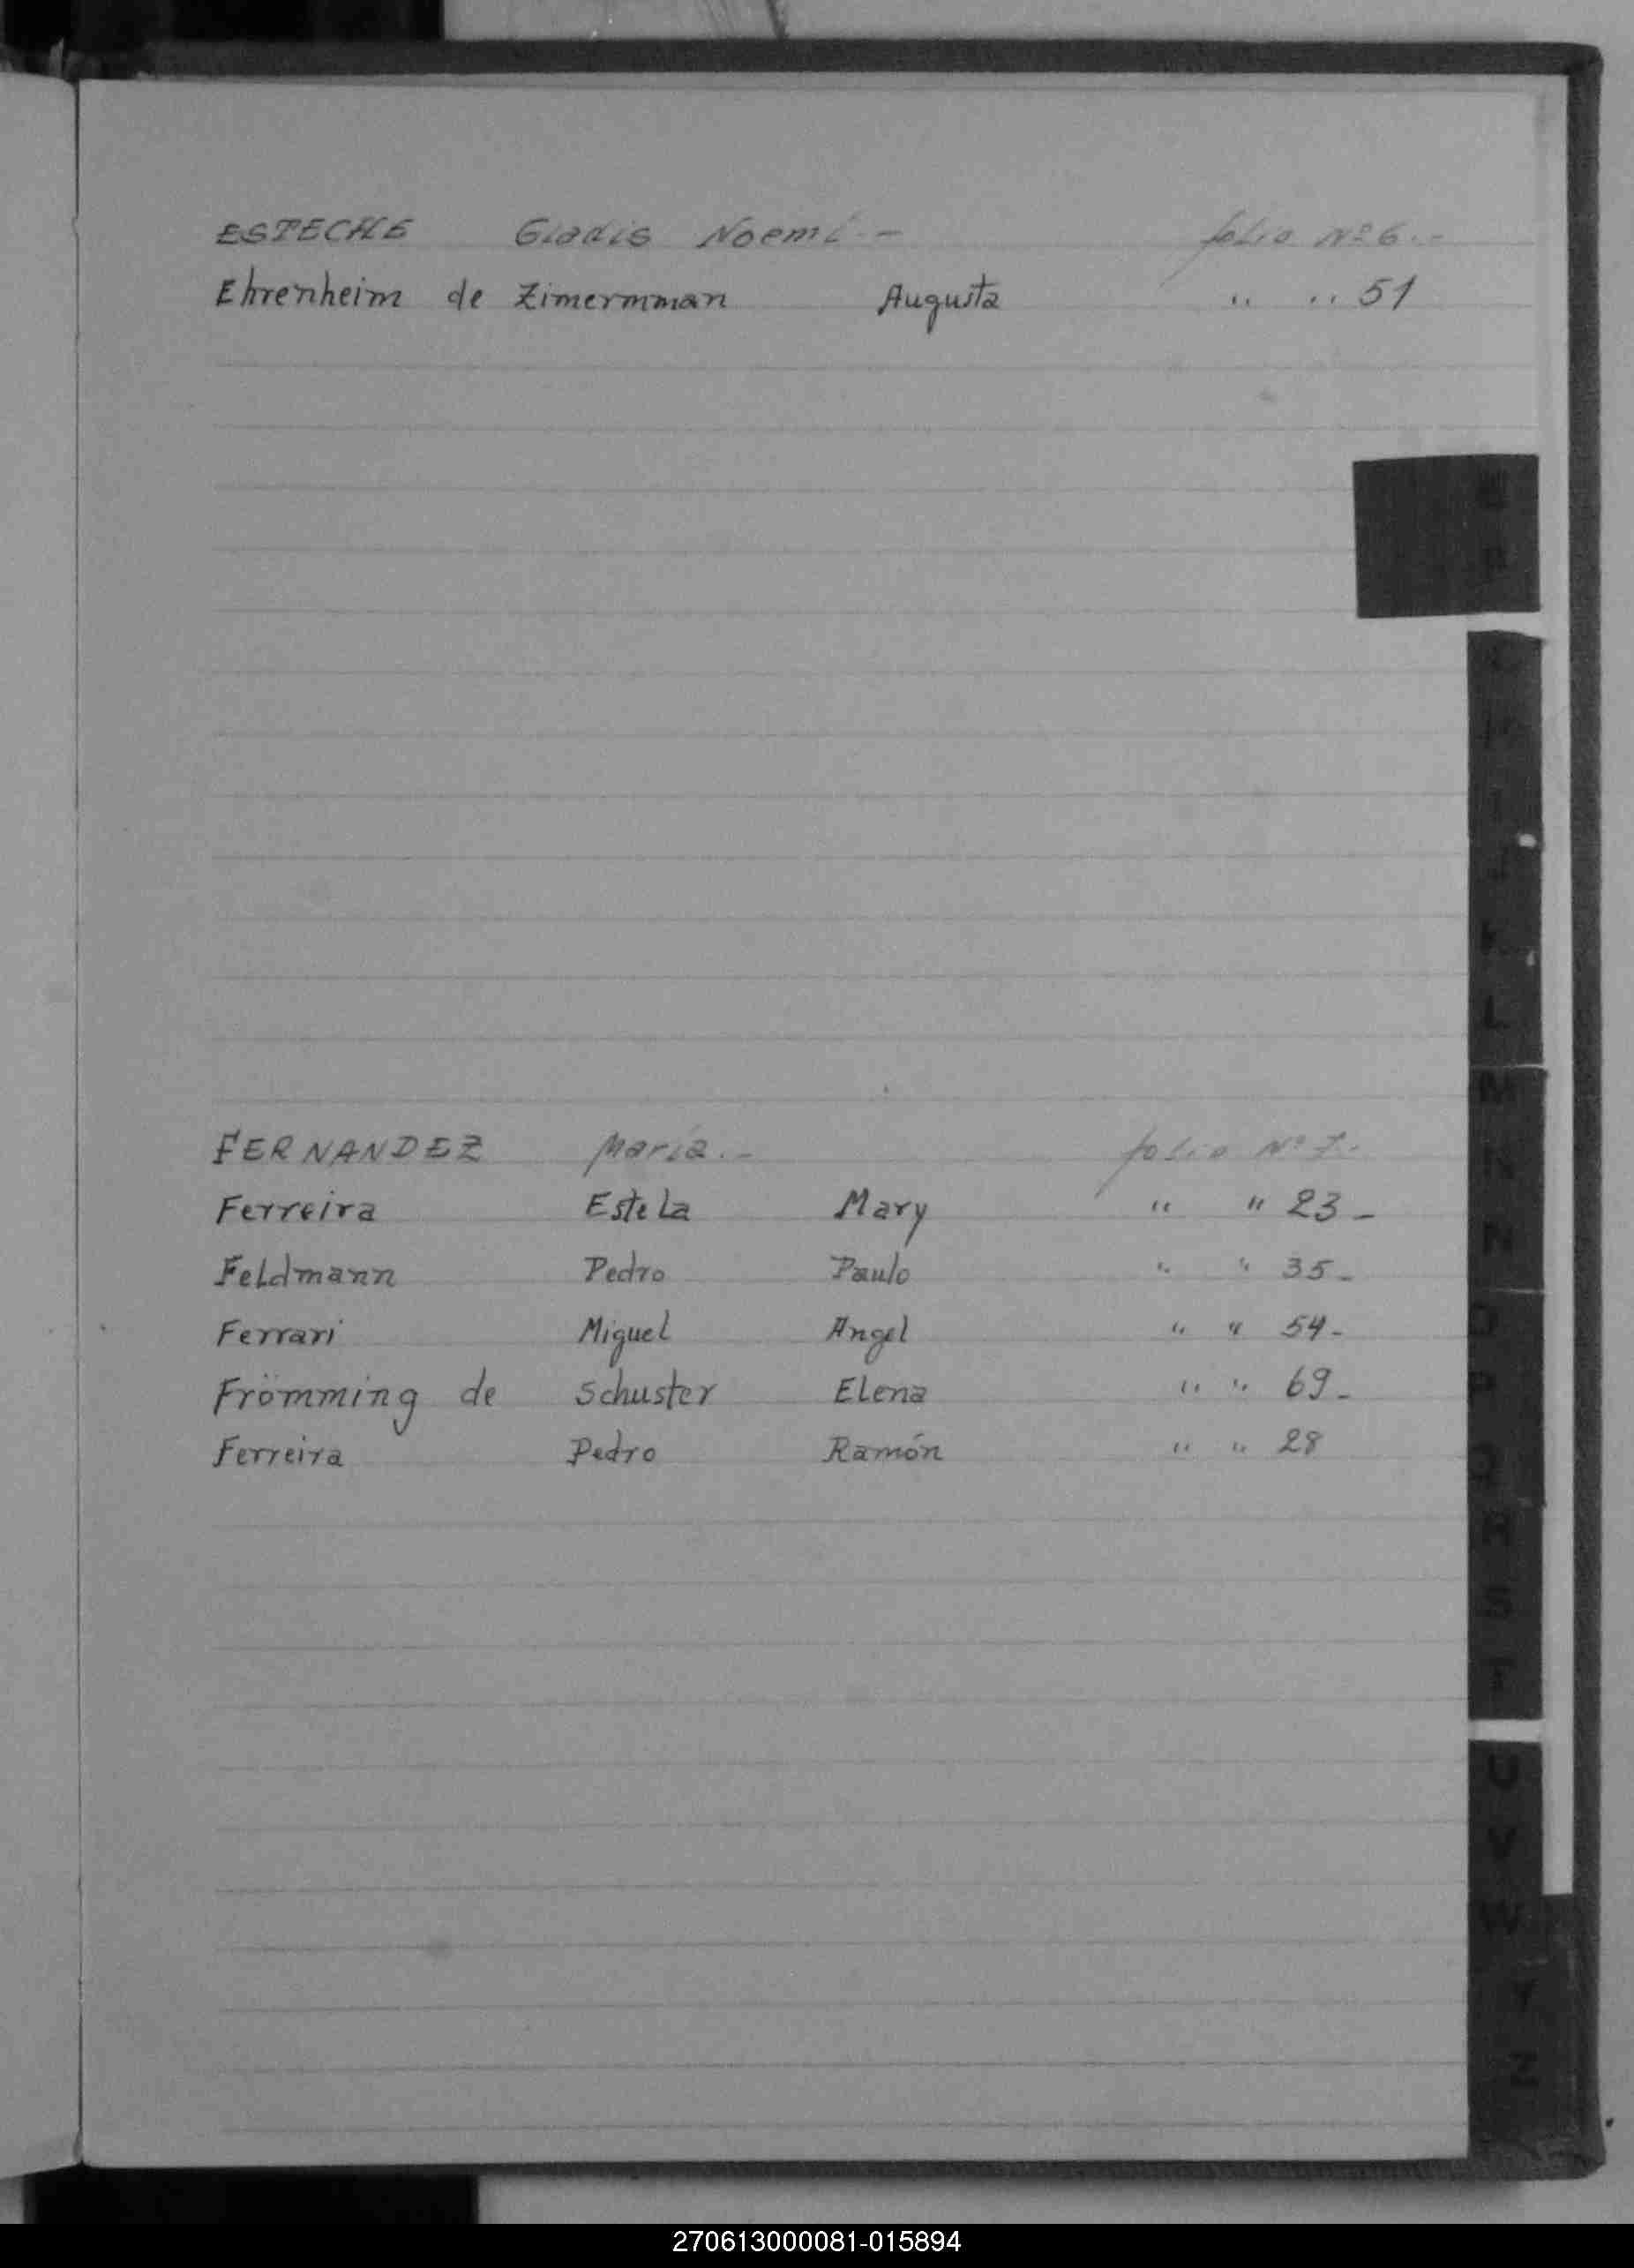 ESTECHE Gladis Noemí.- folio Nº 6.-
Ehrenheim de Zimermman Augusta " " 51
E
F
G
H
I
J
K
L
M
N
N
O
P
Q
R
S
T
U
V
W
Y
Z
FERNANDEZ María.- folio Nº 7.-
Ferreira Estela Mary " " 23-
Feldmann Pedro Paulo " " 35-
Ferrari Miguel Angel " " 54-
Frömming de Schuster Elena " " 69-
Ferreira Pedro Ramón " " 28
270613000081-015894